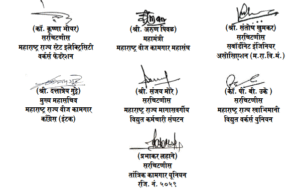 (कॉ. कृष्णा भोयर)
सरचिटणीस
महाराष्ट्र स्टेट इलेक्ट्रिसिटी
वर्कर्स फेडरेशन
(श्री. अरुण पिवळ)
महामंत्री
महाराष्ट्र वीज कामगार महासंघ
(श्री. संतोष खुमकर)
सरचिटणीस
सबॉर्डिनेट इंजिनियर
असोसिएशन (म.रा.वि.मं.)
(श्री. दत्तात्रेय गुट्टे)
मुख्य महासचिव
महाराष्ट्र राज्य वीज कामगार
काँग्रेस (इंटक)
(श्री. संजय मोरे)
सरचिटणीस
महाराष्ट्र राज्य मागासवर्गीय
विद्युत कर्मचारी संघटन
(कॉ. पी. वी. उके)
सरचिटणीस
महाराष्ट्र राज्य स्वाभिमानी
विद्युत वर्कर्स युनियन
(प्रभाकर लहाने)
सरचिटणीस
तांत्रिक कामगार युनियन
रजि. नं. ५०५९